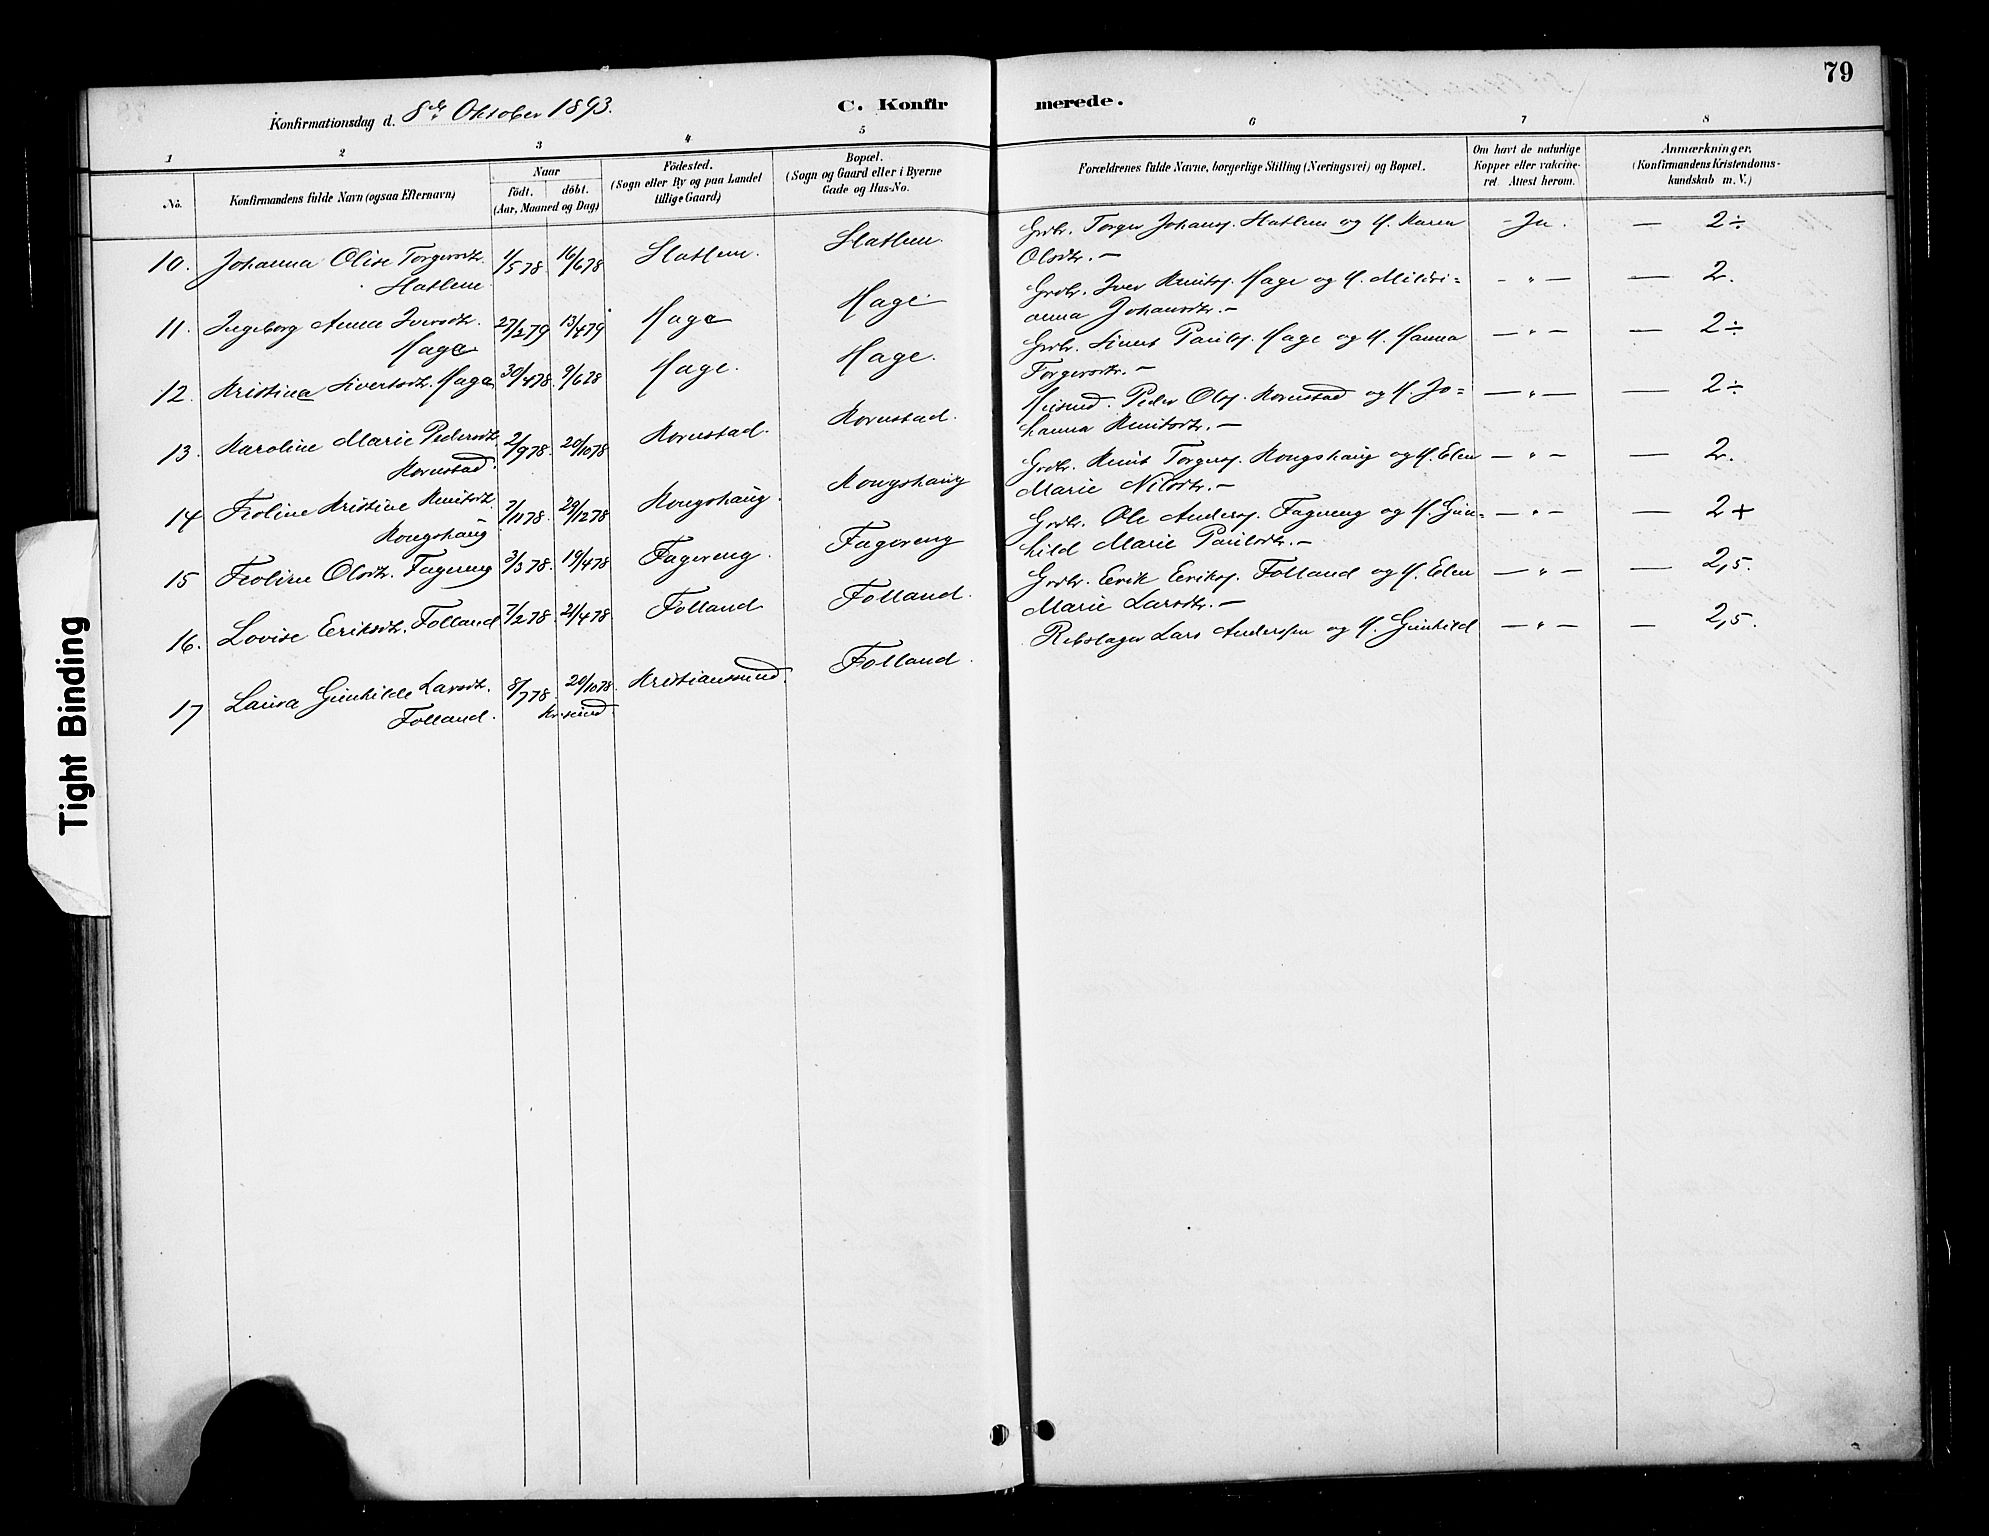 79
Konfirmationsdag d. 8de Oktober 1893.
C. Konfirmerede.
1 2 3 4 5 6 7 8
No.
Konfirmandens fulde Navn (ogsaa Efternavn)
Naar
födt. döbt.
(Aar, Maaned og Dag)
Födested.
(Sogn eller By og paa Landet
tillige Gaard)
Bopæl.
(Sogn og Gaard eller i Byerne
Gade og Hus-No.
Forældrenes fulde Navne, borgerlige Stilling (Næringsvei) og Bopæl.
Om havt de naturlige
Kopper eller vakcine-
ret. Attest herom.
Anmærkninger.
(Konfirmandens Kristendoms-
kundskab m. V.)
10. Johanna Olise Torgersdtr. 1/5 78. 16/6 78 Hatlem. Hatlem. Grdbr. Torger Johans. Hatlem og H. Karen - Ja. — 2÷
Hatlem Olsdtr. —
11. Ingeborg Anna Iversdtr. 27/2 79 13/4 79 Hage Hage Grdbr. Iver Knuts. Hage og H. Mildri= - " — — 2.
Hage anna Johansdtr. —
12. Kristina Sivertsdtr. Hage 30/4 78. 9/6 78 Hage. Hage. Grdbr. Sivert Pauls. Hage og H. Hanna — " — — 2÷
Torgersdtr. —
13. Karoline Marie Pedersdtr. 2/9 78. 20/10 78 Kornstad. Kornstad. Husmd. Peder Ols. Kornstad og H. Jo= — " — — 2÷
Kornstad. hanna Knutsdtr. —
14 Feoline Kristine Knutsdtr. 7/11 78. 29/12 78 Kongshaug. Kongshaug Grdbr. Knut Torgers. Kongshaug og H. Elen — " — — 2.
Kongshaug Marie Nilsdtr. —
15 Feoline Olsdtr. Fagereng 3/3 78. 19/4 78 Fagereng. Fagereng Grdbr. Ole Anders. Fagereng og H. Gun= — " — — 2+
hild Marie Paulsdtr. —
16. Lovise Eriksdtr. Folland 7/2 78. 21/4 78 Folland Folland. Grdbr. Erik Eriks. Folland og H. Elen — " — — 2,5.
Marie Larsdtr. —
17 Laura Gunhilde Larsdtr. 8/7 78. 20/10 78. Kristianssund. Folland. Rebslager Lars Anderssen og H. Gunhild — " — — 2,5.
Folland. Kr.sund.
Tight Binding